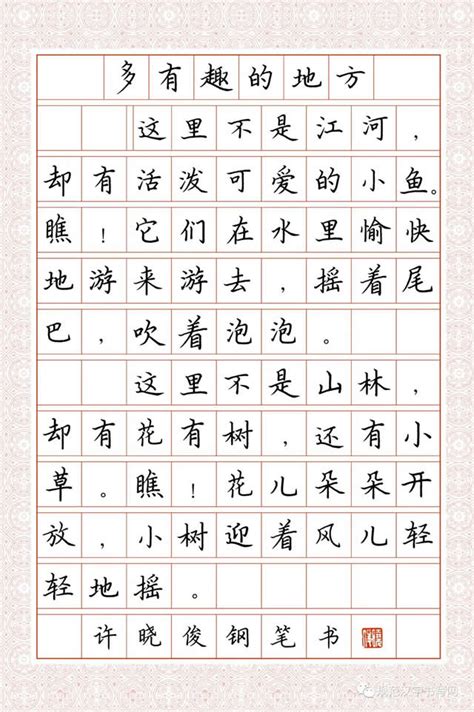 多有趣的地方
这里不是江河，
却有活泼可爱的小鱼。
瞧！它们在水里愉快
地游来游去，摇着尾
巴，吹着泡泡。
这里不是山林，
却有花有树，还有小
草。瞧！花儿朵朵开
放，小树迎着风儿轻
轻地摇。
许晓俊钢笔书